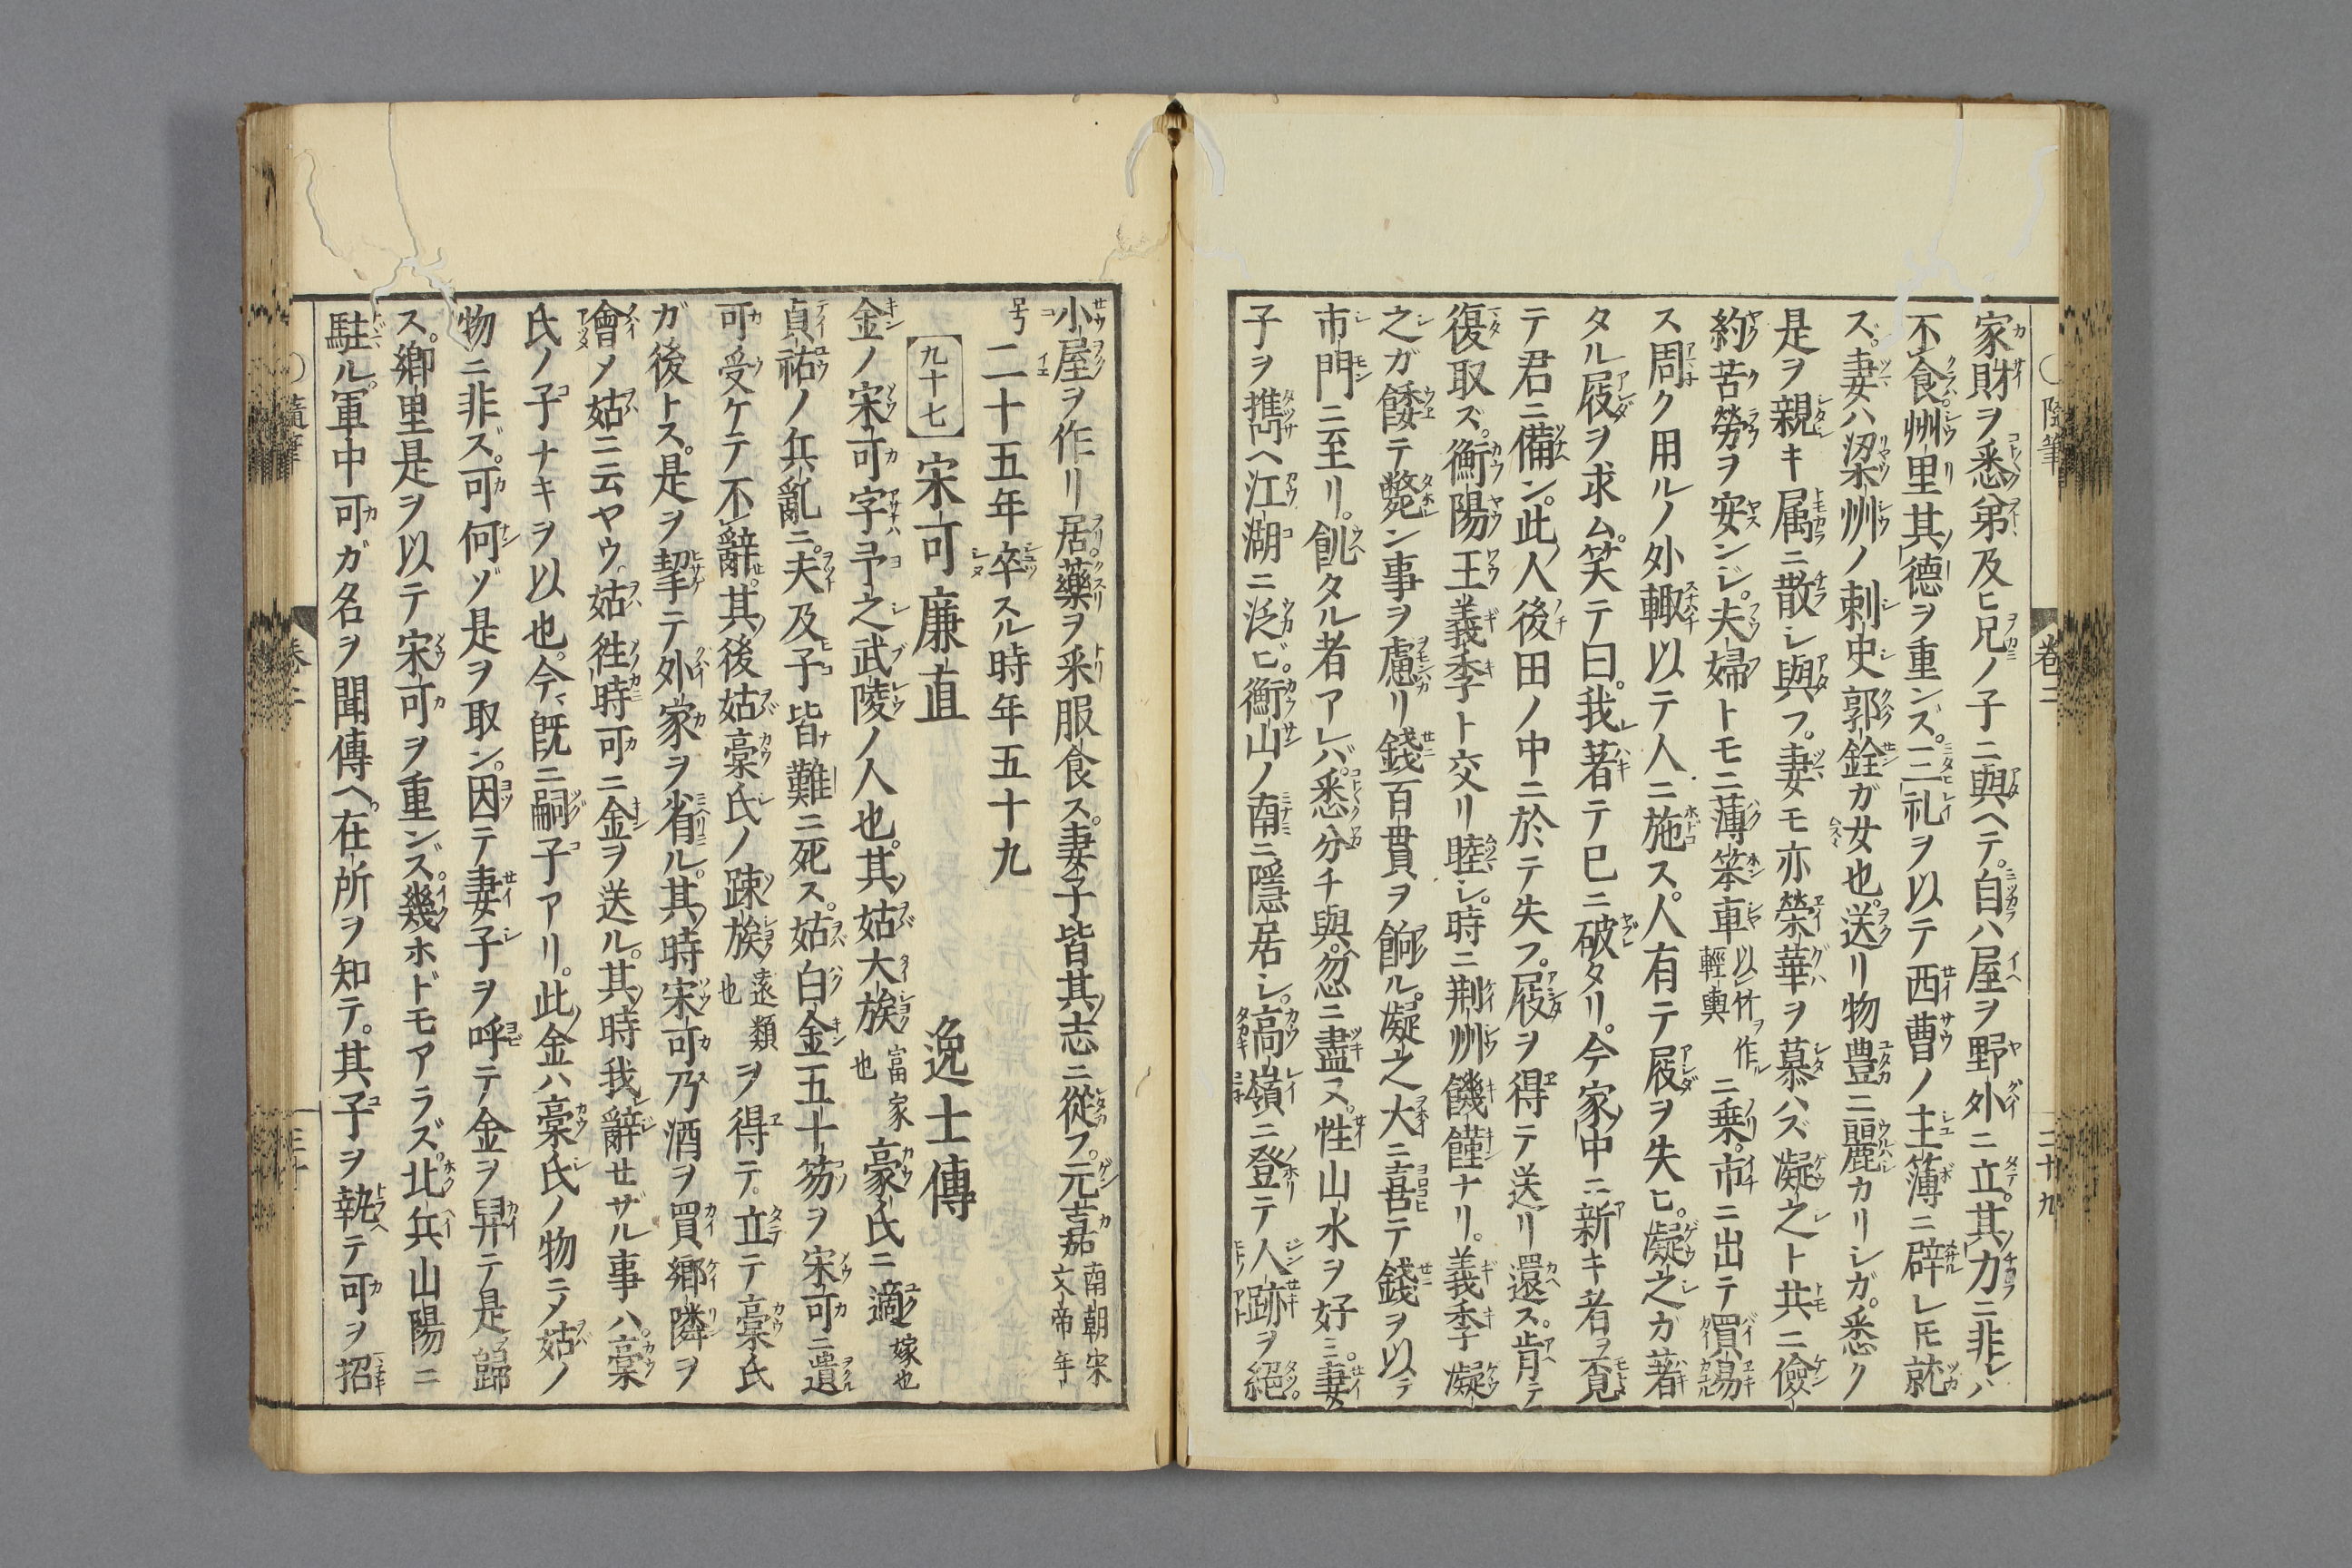 家財ヲ悉弟及ヒ兄ノ子ニ與ヘテ。自ハ屋ヲ野外ニ立。其力ニ非レハ
不食州里其德ヲ重ンズ。三礼ヲ以テ西曹ノ主薄ニ辟レ𪜈就
ズ。妻ハ梁州ノ刺史郭銓ガ女也。送リ物豊ニ麗カリシガ。悉ク
是ヲ親キ属ニ散シ與フ。妻モ亦榮華ヲ慕ハズ凝之ト共ニ儉
約苦勞ヲ安ンジ。夫婦トモニ薄笨車以竹ヲ作ル輕輿ニ乗。市ニ出テ買易
ス周ク用ルノ外輙以テ人ニ施ス。人有テ屐ヲ失ヒ。凝之ガ著
タル屐ヲ求ム。笑テ曰。我著テ已ニ破タリ。今家中ニ新キ者ヲ覔
テ君ニ備ン。此人後田ノ中ニ於テ失フ。屐ヲ得テ送リ還ス。肯テ
復取ズ。衡陽王義季ト交リ睦シ。時ニ荆州饑饉ナリ。義季凝
之ガ餧テ斃ン事ヲ慮リ錢百貫ヲ餉ル。凝之大ニ喜テ錢ヲ以テ
市門ニ至リ。飢タル者アレバ。悉分チ與。忽ニ盡ヌ。性山水ヲ好ミ。妻
子ヲ携ヘ江湖ニ泛ビ。衡山ノ南ニ隱居シ。高嶺ニ登テ人跡ヲ絕。
〇隨筆 卷二 二十九
小屋ヲ作リ居藥ヲ釆服食ス。妻子皆其志ニ從フ。元嘉南朝宋文帝年
号二十五年卒スル時年五十九
九十七 宋可廉直 逸士傳
金ノ宋可字予之武陵ノ人也。其姑大族富家也豪氏ニ適嫁也
貞祐ノ兵亂ニ。夫及子皆難ニ死ス。姑白金五十笏ヲ宋可ニ遺
可受ケテ不辭。其後姑豪氏ノ疎族遠類也ヲ得テ。立テ豪氏
ガ後トス。是ヲ挈テ外家ヲ省ル。其時宋可乃酒ヲ買郷隣ヲ
會メ姑ニ云ヤウ。姑徃時可ニ金ヲ送ル。其時我辭セザル事ハ。豪
氏ノ子ナキヲ以也。今既ニ嗣子アリ。此金ハ豪氏ノ物ニメ姑ノ
物ニ非ズ。可何ゾ是ヲ取ン。因テ妻子ヲ呼テ金ヲ舁テ是歸
ス。郷里是ヲ以テ宋可ヲ重ンズ。幾ホドモアラズ。北兵山陽ニ
駐ル。軍中可ガ名ヲ聞傳ヘ。在所ヲ知テ。其子ヲ執テ可ヲ招
〇隨筆 卷二 三十